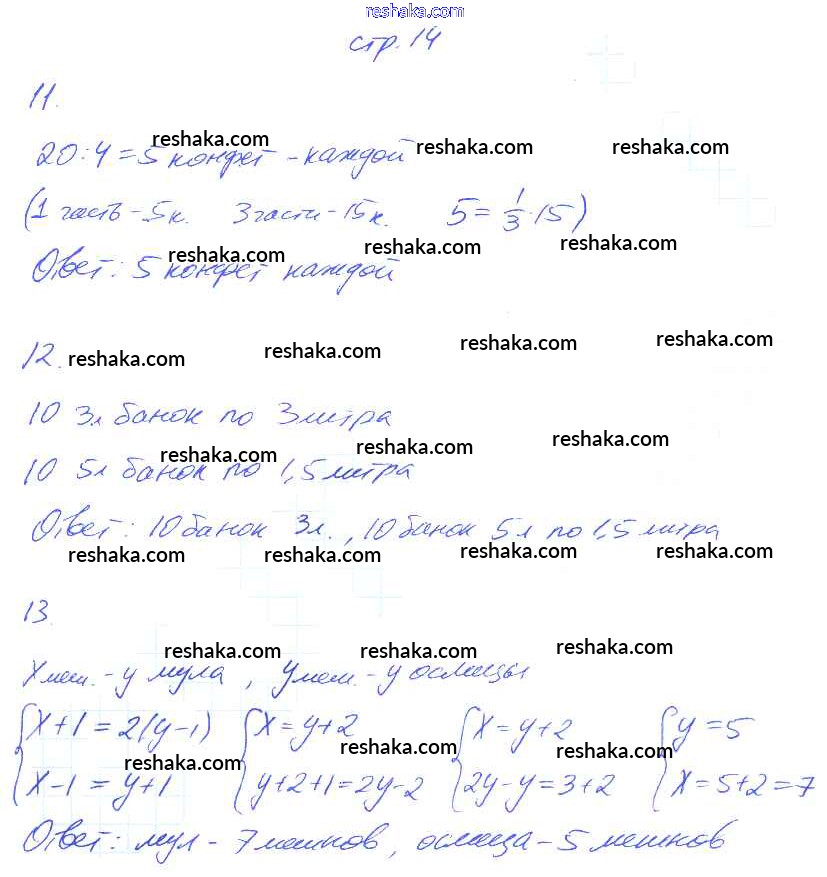 reshaka.com
стр. 14
11.
20:4=5 конфет - каждой
reshaka.com reshaka.com reshaka.com
(1 часть - 5к. 3 части - 15к. 5 = 1/3 · 15)
reshaka.com reshaka.com reshaka.com
Ответ: 5 конфет каждой
12.
reshaka.com reshaka.com reshaka.com reshaka.com
10 3л банок по 3 литра
reshaka.com reshaka.com reshaka.com
10 5л банок по 1,5 литра
Ответ: 10 банок 3л., 10 банок 5л по 1,5 литра
reshaka.com reshaka.com reshaka.com reshaka.com
13.
reshaka.com reshaka.com reshaka.com
X меш. - у мула, y меш. - у ослицы
{X+1=2(y-1) {X=y+2 {X=y+2 {y=5
reshaka.com reshaka.com reshaka.com
{X-1=y+1 {y+2+1=2y-2 {2y-y=3+2 {X=5+2=7
Ответ: мул - 7 мешков, ослица - 5 мешков